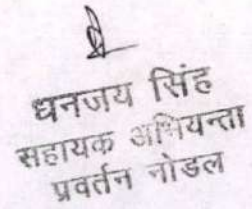 धनजय सिंह
सहायक अभियन्ता
प्रवर्तन नोडल